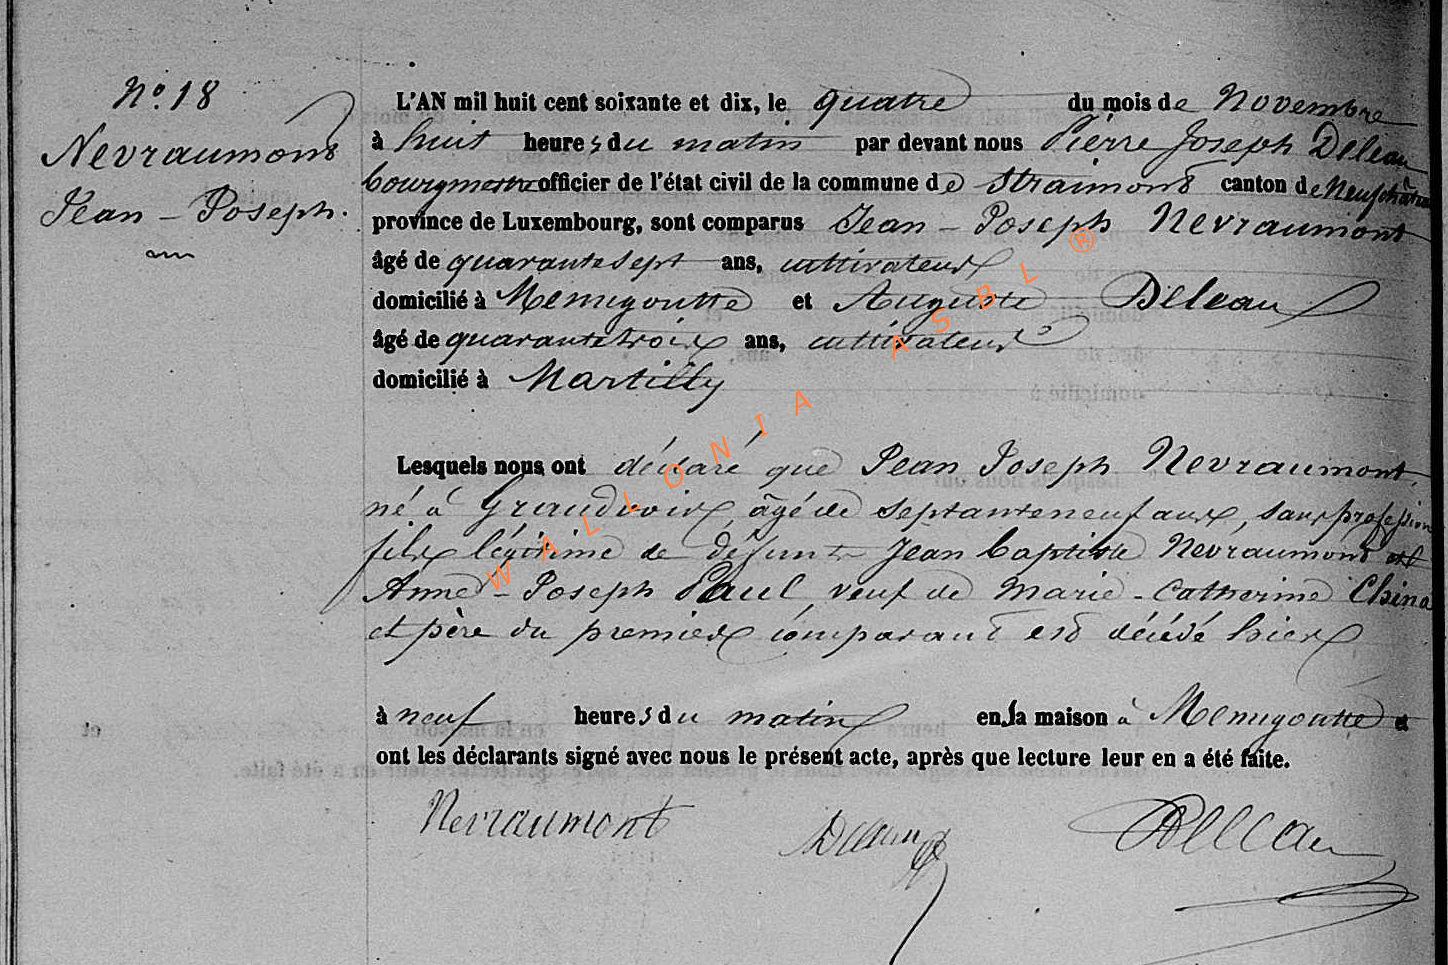 N°. 18
Nevraumont
Jean - Joseph.
L'AN mil huit cent soixante et dix, le quatre du mois de Novembre
à huit heures du matin par devant nous Pierre Joseph Deleau
bourgmestre officier de l'état civil de la commune de Straimont canton de Neufchâteau
province de Luxembourg, sont comparus Jean - Joseph Nevraumont
âgé de quarante sept ans, cultivateur
domicilié à Menugoutte et Auguste Deleau
âgé de quarante trois ans, cultivateur
domicilié à Martilly
Lesquels nous ont déclaré que Jean Joseph Nevraumont,
né à Grandvoir, âgé de septante neuf ans, sans profession
fils légitime de défunts Jean Baptiste Nevraumont et
Anne - Joseph Paul, veuf de Marie - Catherine China
et père du premier comparant est décédé hier
à neuf heures du matin en sa maison à Menugoutte et
ont les déclarants signé avec nous le présent acte, après que lecture leur en a été faite.
Nevraumont Deleau Deleau
WALLONIA ASBL ®